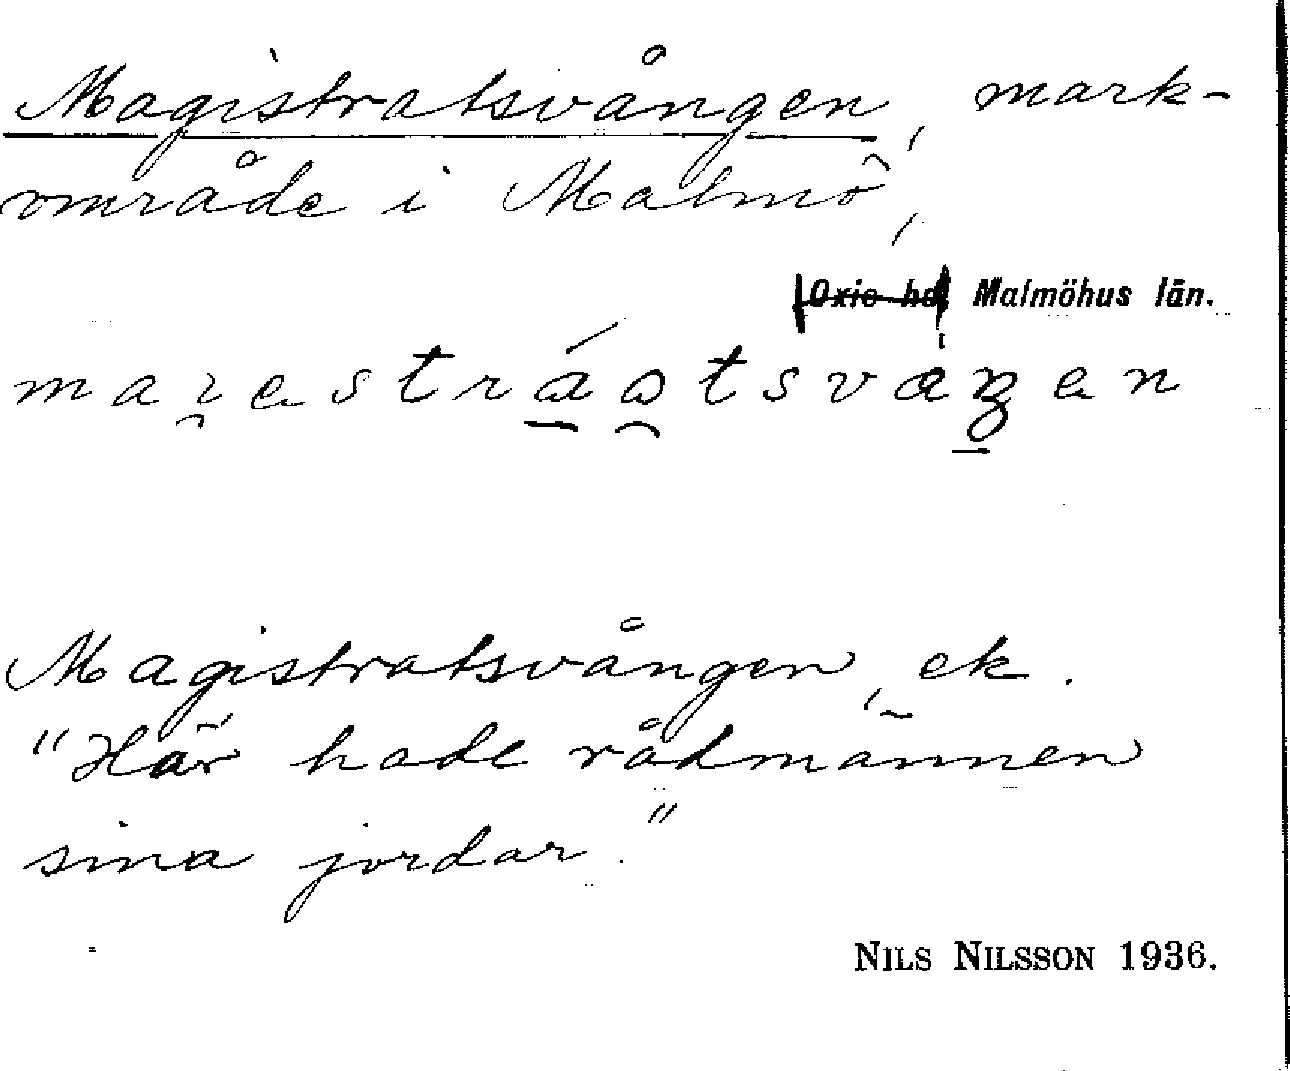 Magistratsvången, mark-
område i Malmö,
Oxie hd, Malmöhus län.
Magistratsvången, ek.
"Här hade rådmännen
sina jordar."
NILS NILSSON 1936.